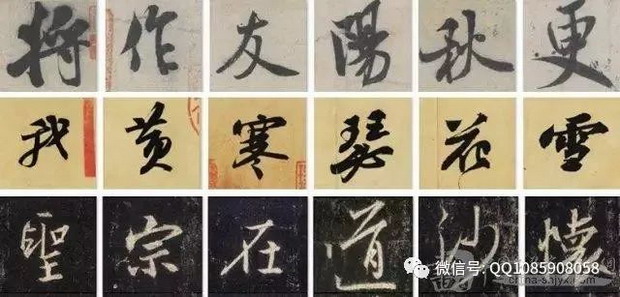 将作友陽秋更
我黄寒瑟花雪
聖宗在道沙懷
微信号: QQ1085908058